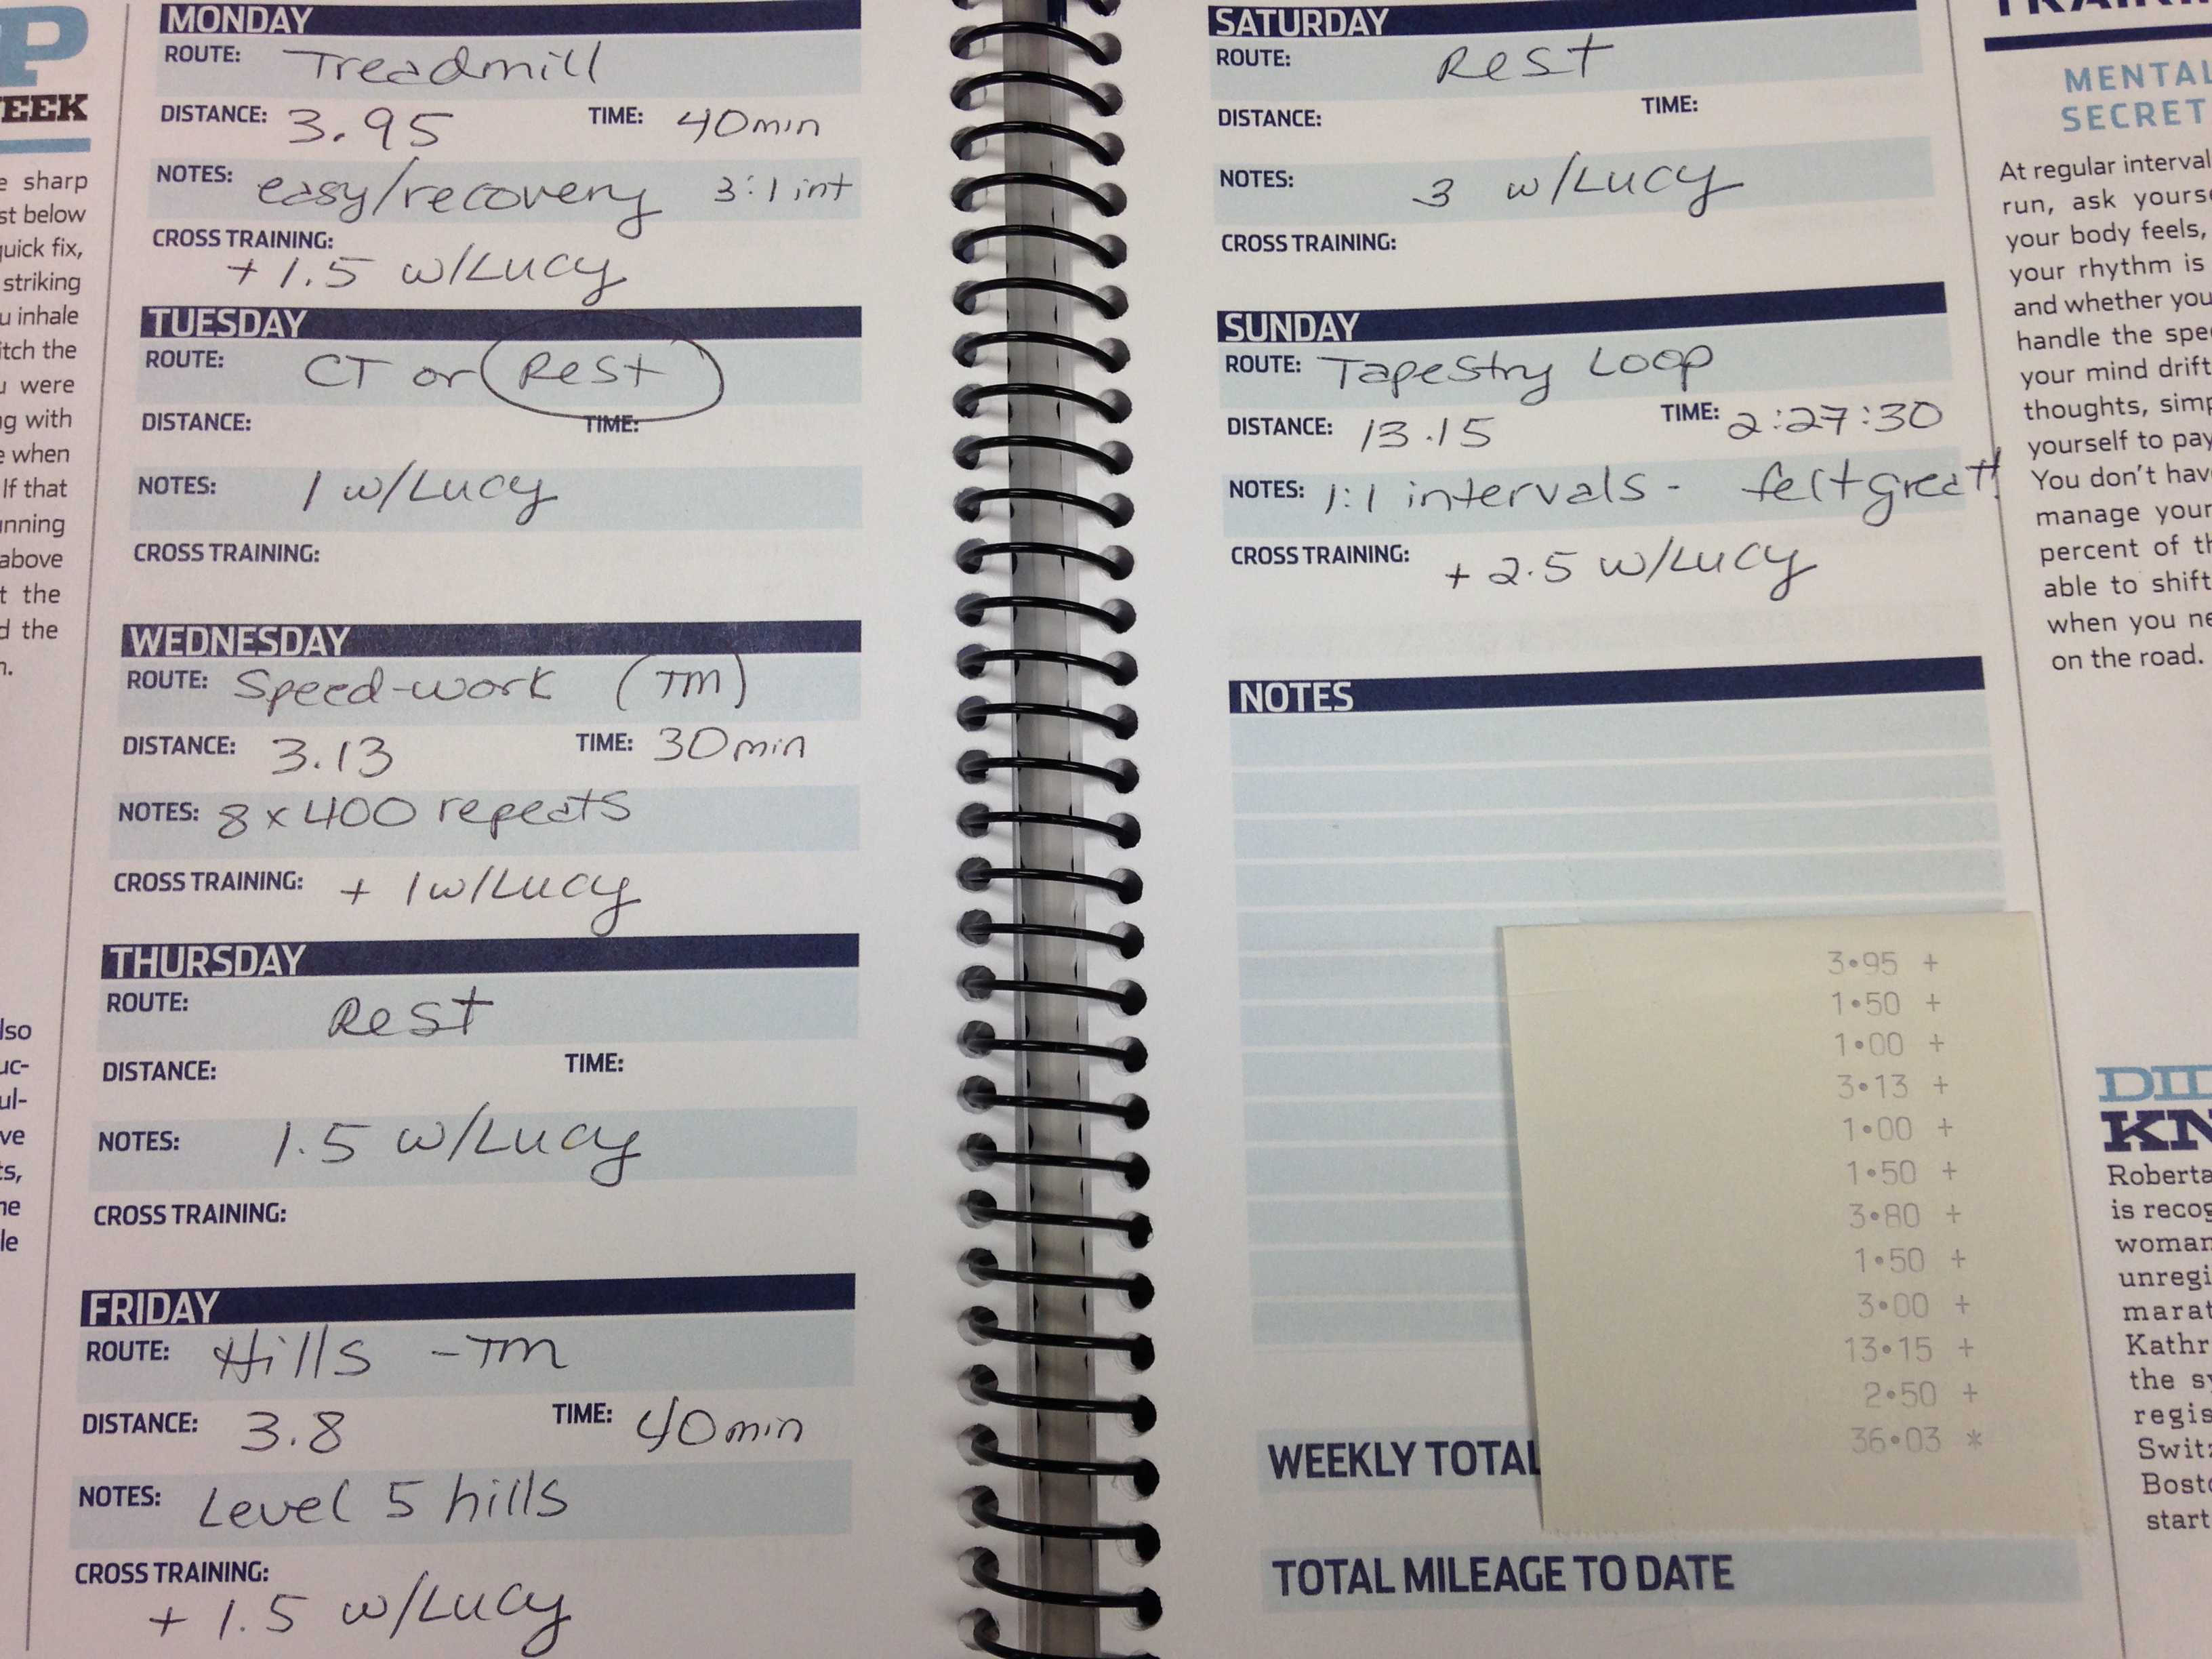 P
EEK
e sharp
st below
quick fix,
striking
u inhale
itch the
u were
ng with
e when
If that
unning
above
t the
d the
n.
lso
uc-
ul-
ve
ts,
ne
le
MONDAY
ROUTE: Treadmill
DISTANCE: 3.95 TIME: 40min
NOTES: easy/recovery 3:1 int
CROSS TRAINING:
+ 1.5 w/Lucy
TUESDAY
ROUTE: CT or Rest
DISTANCE: TIME:
NOTES: 1 w/Lucy
CROSS TRAINING:
WEDNESDAY
ROUTE: Speed-work (TM)
DISTANCE: 3.13 TIME: 30min
NOTES: 8 x 400 repeats
CROSS TRAINING: + 1 w/Lucy
THURSDAY
ROUTE: Rest
DISTANCE: TIME:
NOTES: 1.5 w/Lucy
CROSS TRAINING:
FRIDAY
ROUTE: Hills - TM
DISTANCE: 3.8 TIME: 40min
NOTES: Level 5 hills
CROSS TRAINING:
+ 1.5 w/Lucy
SATURDAY
ROUTE: Rest
DISTANCE: TIME:
NOTES: 3 w/Lucy
CROSS TRAINING:
SUNDAY
ROUTE: Tapestry Loop
DISTANCE: 13.15 TIME: 2:27:30
NOTES: 1:1 intervals - felt great!
CROSS TRAINING: + 2.5 w/Lucy
NOTES
3.95 +
1.50 +
1.00 +
3.13 +
1.00 +
1.50 +
3.80 +
1.50 +
3.00 +
13.15 +
2.50 +
36.03 *
WEEKLY TOTAL
TOTAL MILEAGE TO DATE
MENTAL
SECRET
At regular interval
run, ask yourse
your body feels,
your rhythm is
and whether you
handle the spee
your mind drift
thoughts, simp
yourself to pay
You don't hav
manage your
percent of th
able to shift
when you ne
on the road.
DI
KN
Roberta
is recog
woman
unregi
marat
Kathr
the sy
regis
Switz
Bosto
start